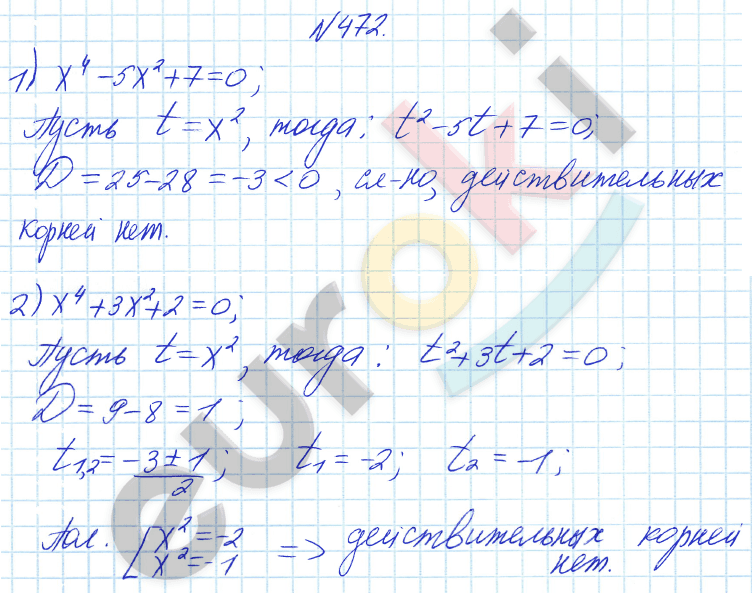 №472.
1) x⁴ - 5x² + 7 = 0;
Пусть t = x², тогда: t² - 5t + 7 = 0;
D = 25 - 28 = -3 < 0, сл-но, действительных
корней нет.
2) x⁴ + 3x² + 2 = 0;
Пусть t = x², тогда: t² + 3t + 2 = 0;
D = 9 - 8 = 1;
t₁,₂ = (-3 ± 1)/2; t₁ = -2; t₂ = -1;
Пол. [x² = -2 => действительных корней
x² = -1 нет.
euroki